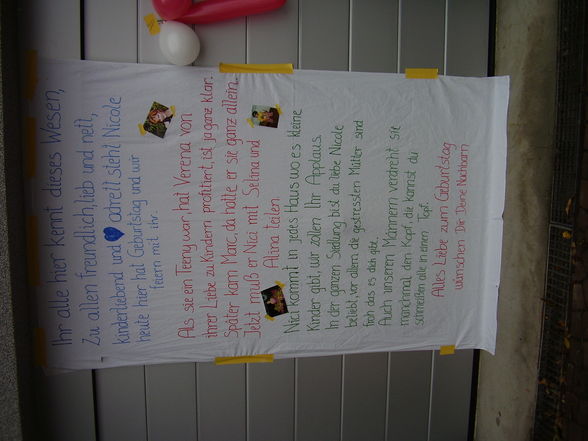 Ihr alle hier kennt dieses Wesen,
Zu allen freundlich, lieb und nett,
kinderliebend und adrett steht Nicole
heute hier hat Geburtstag und wir
feiern mit ihr.
Als sie ein Teeny war, hat Verena von
ihrer Liebe zu Kindern profitiert, ist ja ganz klar.
Später kam Marc, da hatte er sie ganz allein.
Jetzt muß er Nici mit Selina und
Alina teilen
Nici kommt in jedes Haus wo es kleine
Kinder gibt, wir zollen Ihr Applaus.
In der ganzen Siedlung bist du liebe Nicole
beliebt, vor allem die gestressten Mütter sind
froh das es dich gibt.
Auch unseren Männern verdrehst sie
manchmal den Kopf, die kannst du
schmeißen alle in einen Topf.
Alles Liebe zum Geburtstag
wünschen Dir Deine Nachbarn